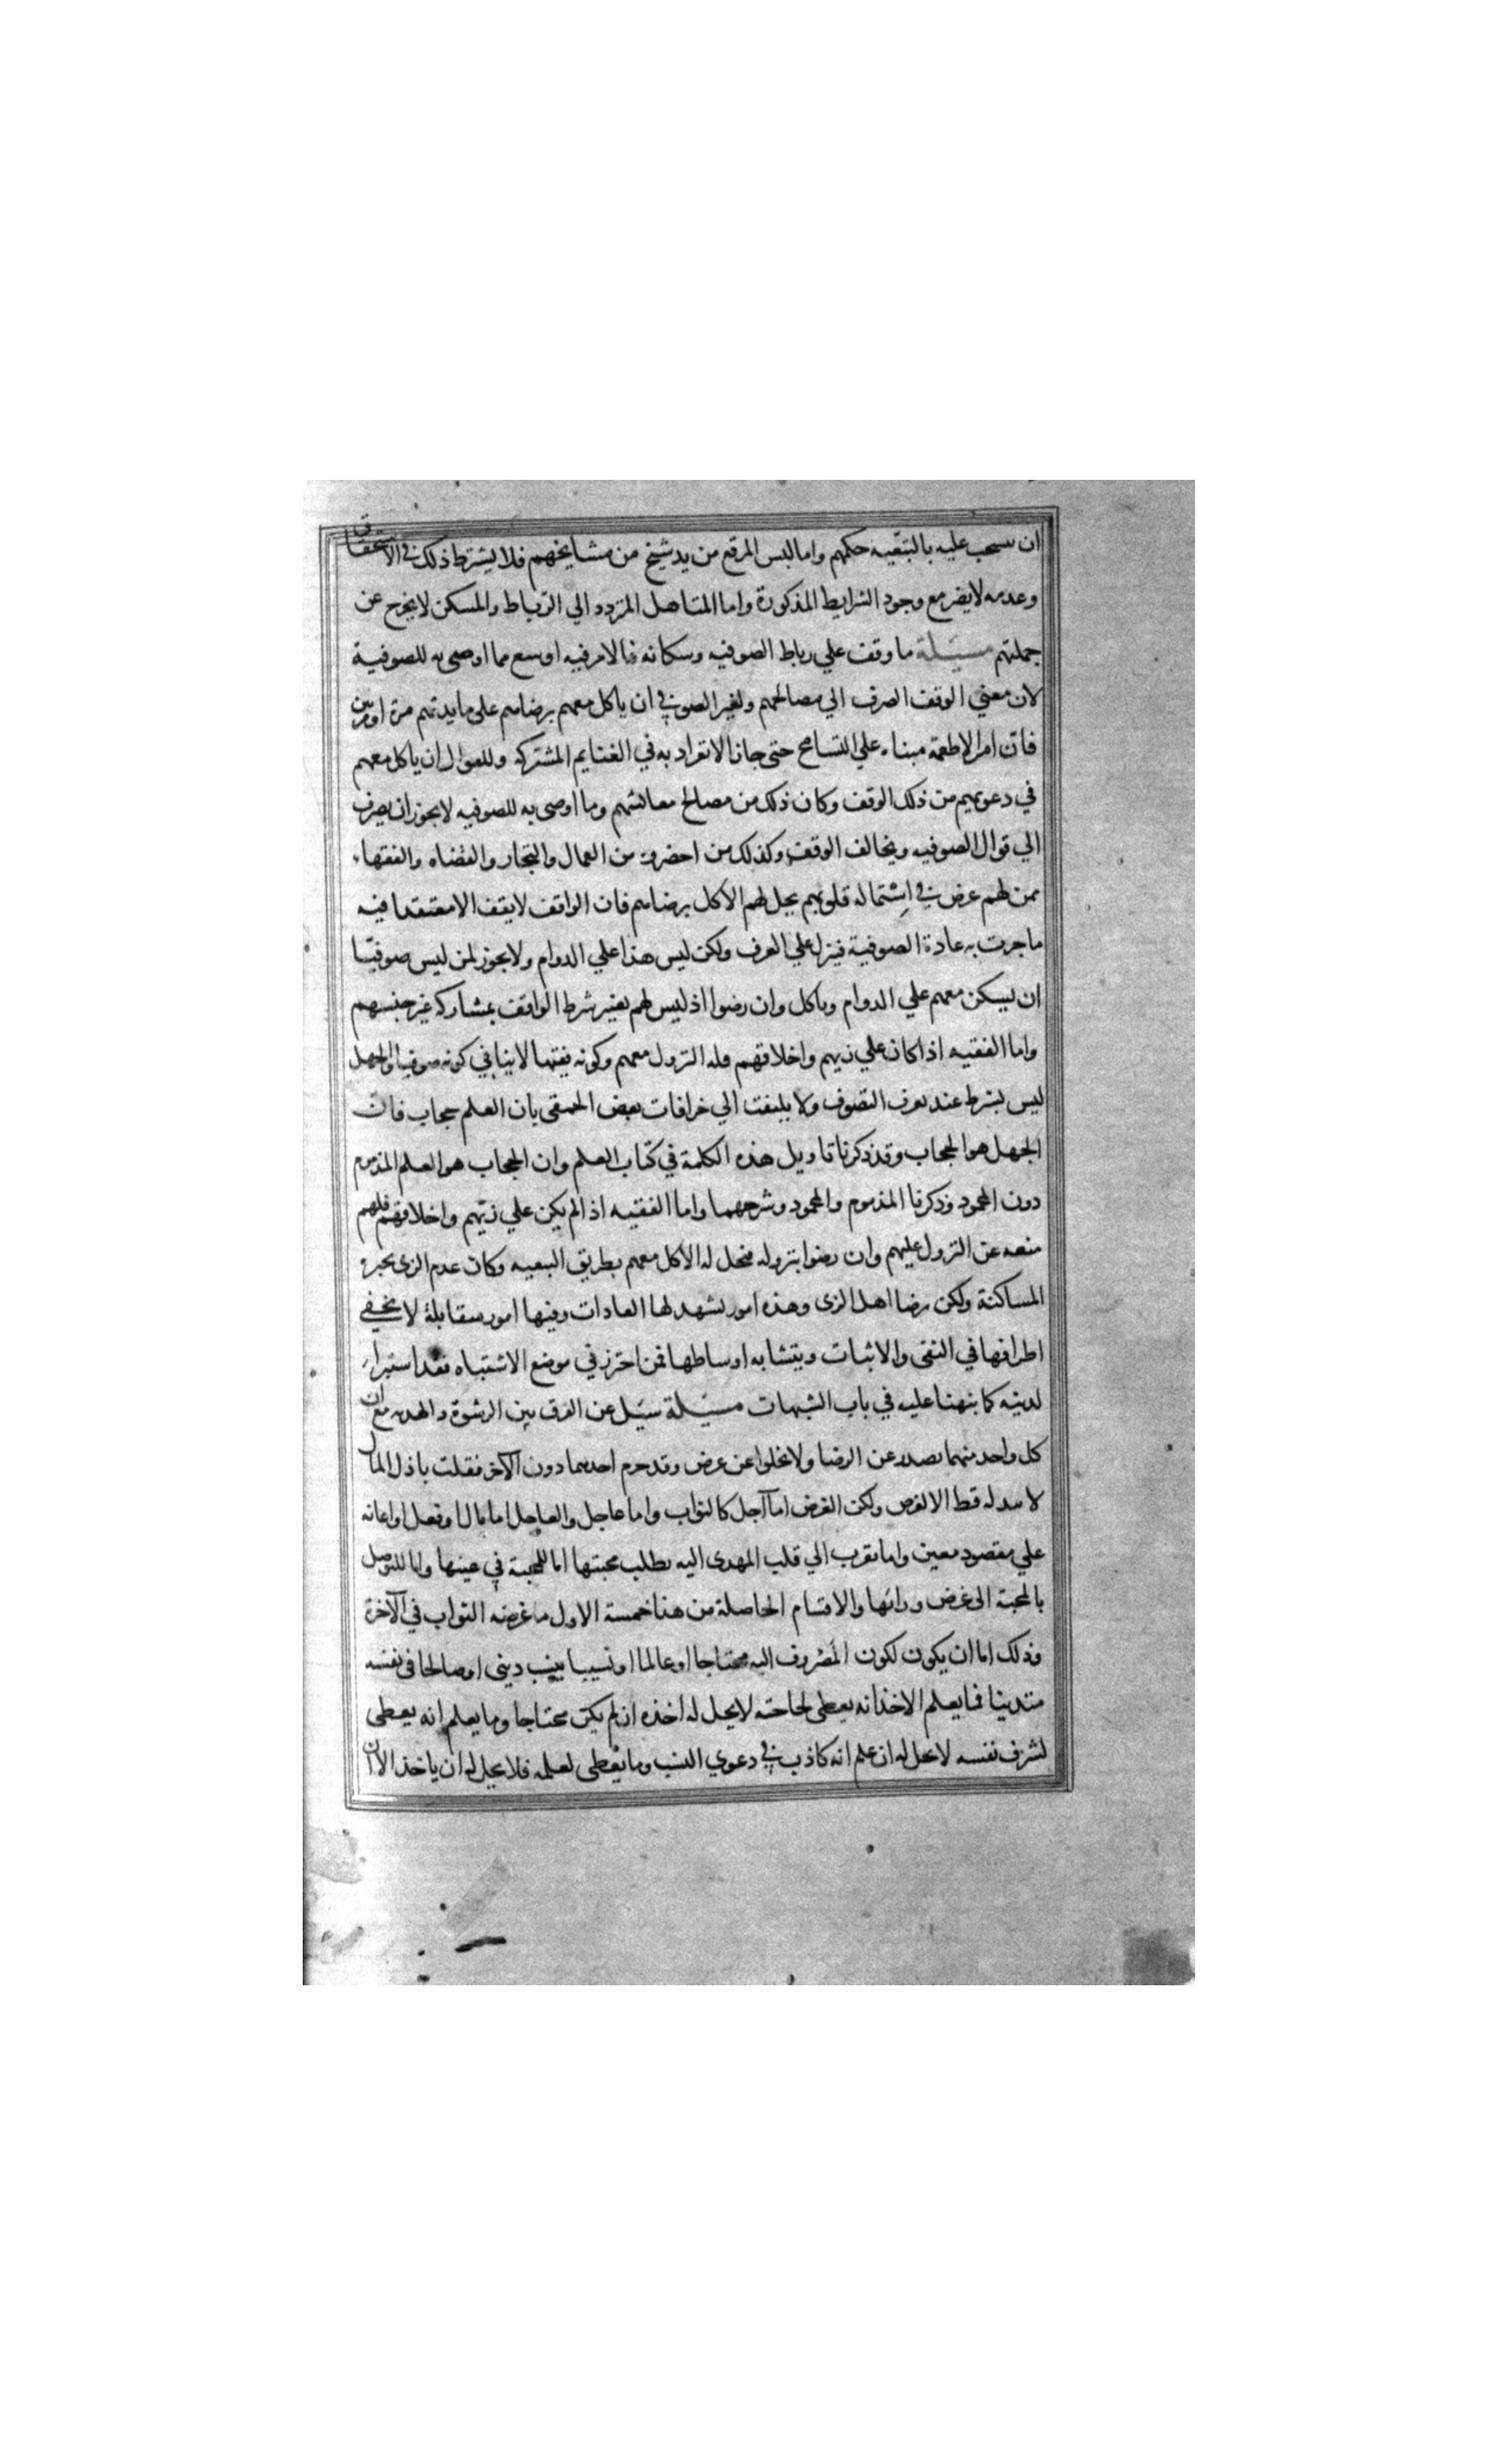 ان سحب عليه بالتبعيه حكمهم واما لبس المرقع من يد شيخ من مشايخهم فلا يشترط ذلك في الاستحقاق
وعدمه لا يضر مع وجود الشرايط المذكورة واما المتاهل المتردد الي الرباط والمسكن لا يخرج عن
جملتهم مسئلة ما وقف علي رباط الصوفيه وسكانه فالامر فيه اوسع مما اوصي به للصوفية
لان معني الوقف الصرف الي مصالحهم ولغير الصوفي ان ياكل معهم برضاهم علي مايدتهم مرة او مرتين
فان امر الاطعمة مبناه علي التسامح حتي جاز الانفراد به في الغنايم المشتركه وللقوال ان ياكل معهم
في دعوتهم من ذلك الوقف وكان ذلك من مصالح معائشهم وما اوصي به للصوفيه لا يجوز ان يصرف
الي قوال الصوفيه ويخالف الوقف وكذلك من احضروه من العمال والتجار والقضاه والفقهاء
ممن لهم غرض في استماله قلوبهم يحل لهم الاكل برضاهم فان الواقف لا يقف الا معتقدا فيه
ما جرت به عادة الصوفية فينزل علي العرف ولكن ليس هذا علي الدوام ولا يجوز لمن ليس صوفيا
ان يسكن معهم علي الدوام وياكل وان رضوا اذ ليس لهم تغيير شرط الواقف بمشاركه غير جنسهم
واما الفقيه اذا كان علي زيهم واخلاقهم فله النزول معهم وكونه فقيها لا ينافي كونه صوفيا والجهل
ليس بشرط عند يعرف التصوف ولا يلتفت الي خرافات بعض الحمقي بان العلم حجاب فان
الجهل هو الحجاب وقد ذكرنا تاويل هذه الكلمة في كتاب العلم وان الحجاب هو العلم المذموم
دون المحمود وذكرنا المذموم والمحمود وشرحهما واما الفقيه اذا لم يكن علي زيهم واخلاقهم فلهم
منعه عن النزول عليهم وان رضوا بنزوله فيحل له الاكل معهم بطريق التبعيه وكان عدم الزي يجبره
المساكنة ولكن برضا اهل الزي وهذه امور يشهد لها العادات وفيها امور متقابلة لا يخفي
اطرافها في النفي والاثبات ويتشابه اوساطها فمن احترز في موضع الاشتباه فقد استبراء
لدينه كما نبهنا عليه في باب الشبهات مسئلة سئل عن الفرق بين الرشوة والهديه مع ان
كل واحد منهما يصدر عن الرضا ولا يخلوا عن غرض وقد حرم احدهما دون الآخر فقلت باذل المال
لا يبذله قط الا لغرض ولكن الغرض اما آجل كالثواب واما عاجل والعاجل اما مال او فعل او اعانه
علي مقصود معين واما تقرب الي قلب المهدي اليه بطلب محبتها اما للمحبة في عينها واما للتوصل
بالمحبة الي غرض ورائها والاقسام الحاصلة من هذا خمسة الاول ما غرضه الثواب في الآخرة
وذلك اما ان يكون لكون المصروف اليه محتاجا او عالما او نسيبا بنسب ديني او صالحا في نفسه
متدينا فما يعلم الاخذ انه يعطي لحاجته لا يحل له اخذه ان لم يكن محتاجا وما يعلم انه يعطي
لشرف نفسه لا يحل له ان علم انه كاذب في دعوي النسب وما يعطي لعلمه فلا يحل له ان ياخذ الا ان